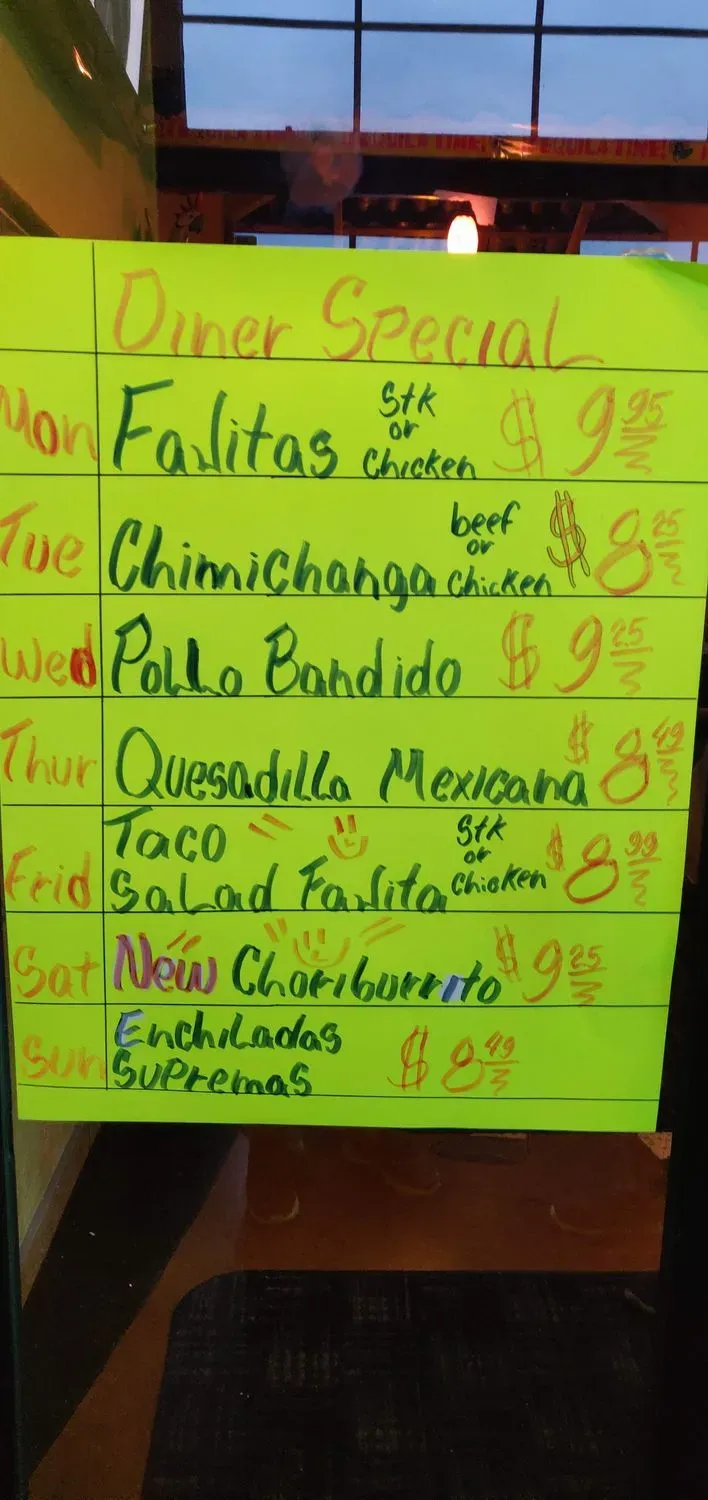 TEQUILA TIME!
Diner Special
Mon Fajitas Stk or Chicken $9.95
Tue Chimichanga beef or Chicken $8.25
Wed Pollo Bandido $9.25
Thur Quesadilla Mexicana $8.49
Frid Taco
Salad Fajita Stk or Chicken $8.99
Sat New Choriburrito $9.25
Sun Enchiladas
Supremas $8.49